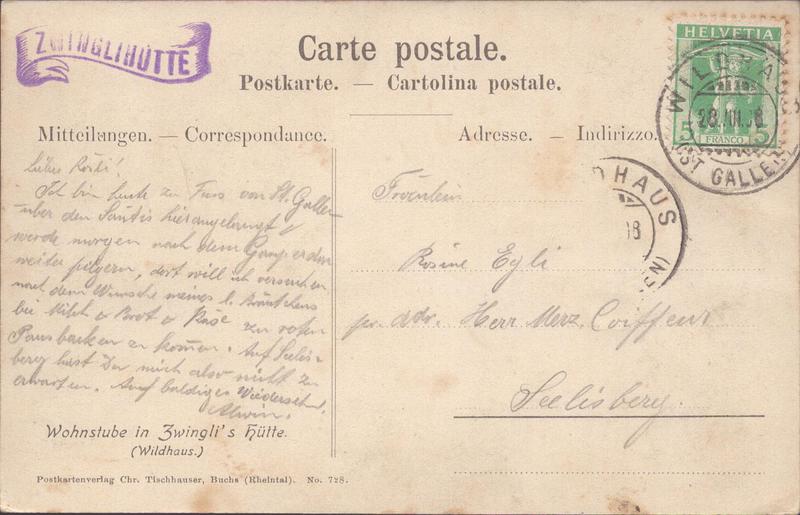 ZWINGLIHÜTTE
Carte postale.
Postkarte. — Cartolina postale.
Mitteilungen. — Correspondance.
Adresse. — Indirizzo.
HELVETIA
5 5
FRANCO
WILDHAUS
(ST GALLEN)
DHAUS
Liebes Rosli!
Ich bin heute zu Fuss von St. Gallen
über den Säntis hierangelangt
werde morgen nach dem
weiter pilgern, dort will ich versuchen
nach dem Wunsche meines l. Bräutchens
bei Milch & Brot & Käse zu roten
Pausbacken zu kommen. Auf Seelis-
berg hast Du mich also nicht zu
erwarten. Auf baldiges Wiedersehn.
Alwin.
Fräulein
Rosine Egli
pr. adr. Herr Merz, Coiffeur
Seelisberg.
Wohnstube in Zwingli's Hütte.
(Wildhaus.)
Postkartenverlag Chr. Tischhauser, Buchs (Rheintal). No. 728.